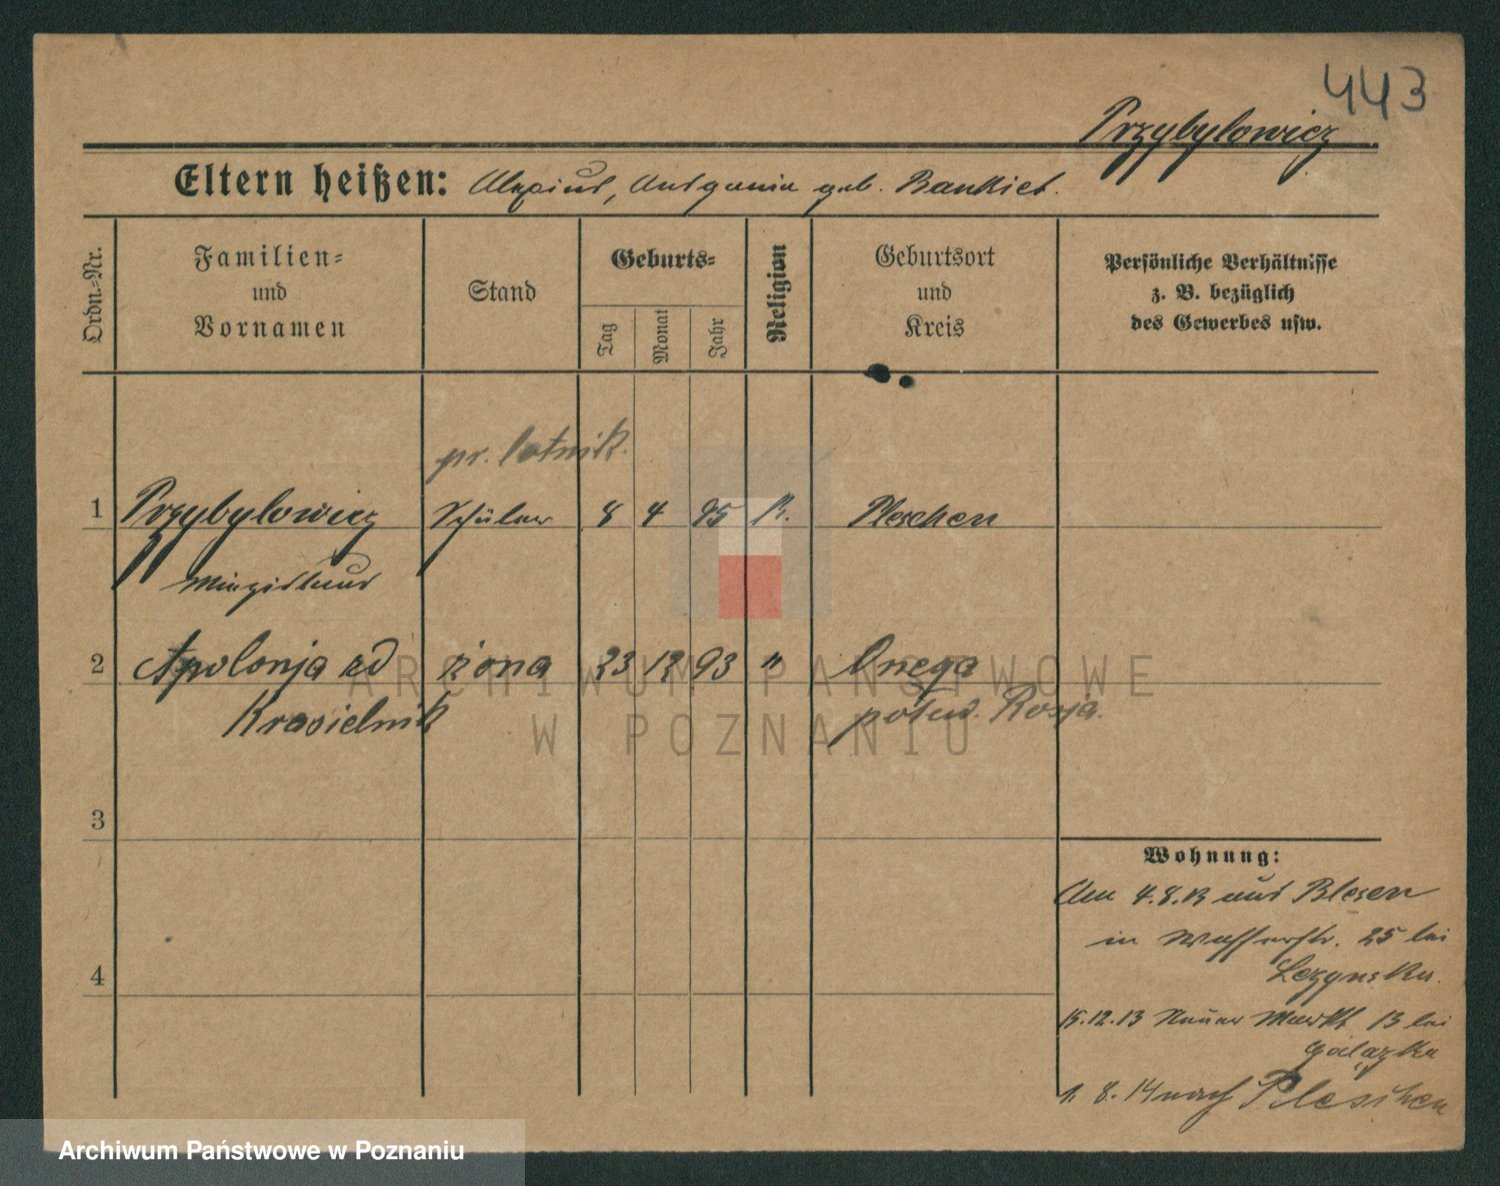 443
Przybylowicz
Eltern heißen: Alexius, geb. Bankiet.
Ordn.-Nr.
Familien-
und
Vornamen
Stand
Geburts-
Tag
Monat
Jahr
Religion
Geburtsort
und
Kreis
Persönliche Verhältnisse
z. B. bezüglich
des Gewerbes usw.
pr. lotnik.
1 Przybylowicz Schüler 8 4 95 K. Pleschen
2 Apolonja zd żona 23 12 93 " Onega
Krasielnik Rosja.
3
4
Wohnung:
Am 4.8.13 aus
in Wasserstr. 25 bei
15.12.13 Neuer Markt 13 bei
1. 8. 14 nach Pleschen
ARCHIWUM PAŃSTWOWE
W POZNANIU
Archiwum Państwowe w Poznaniu